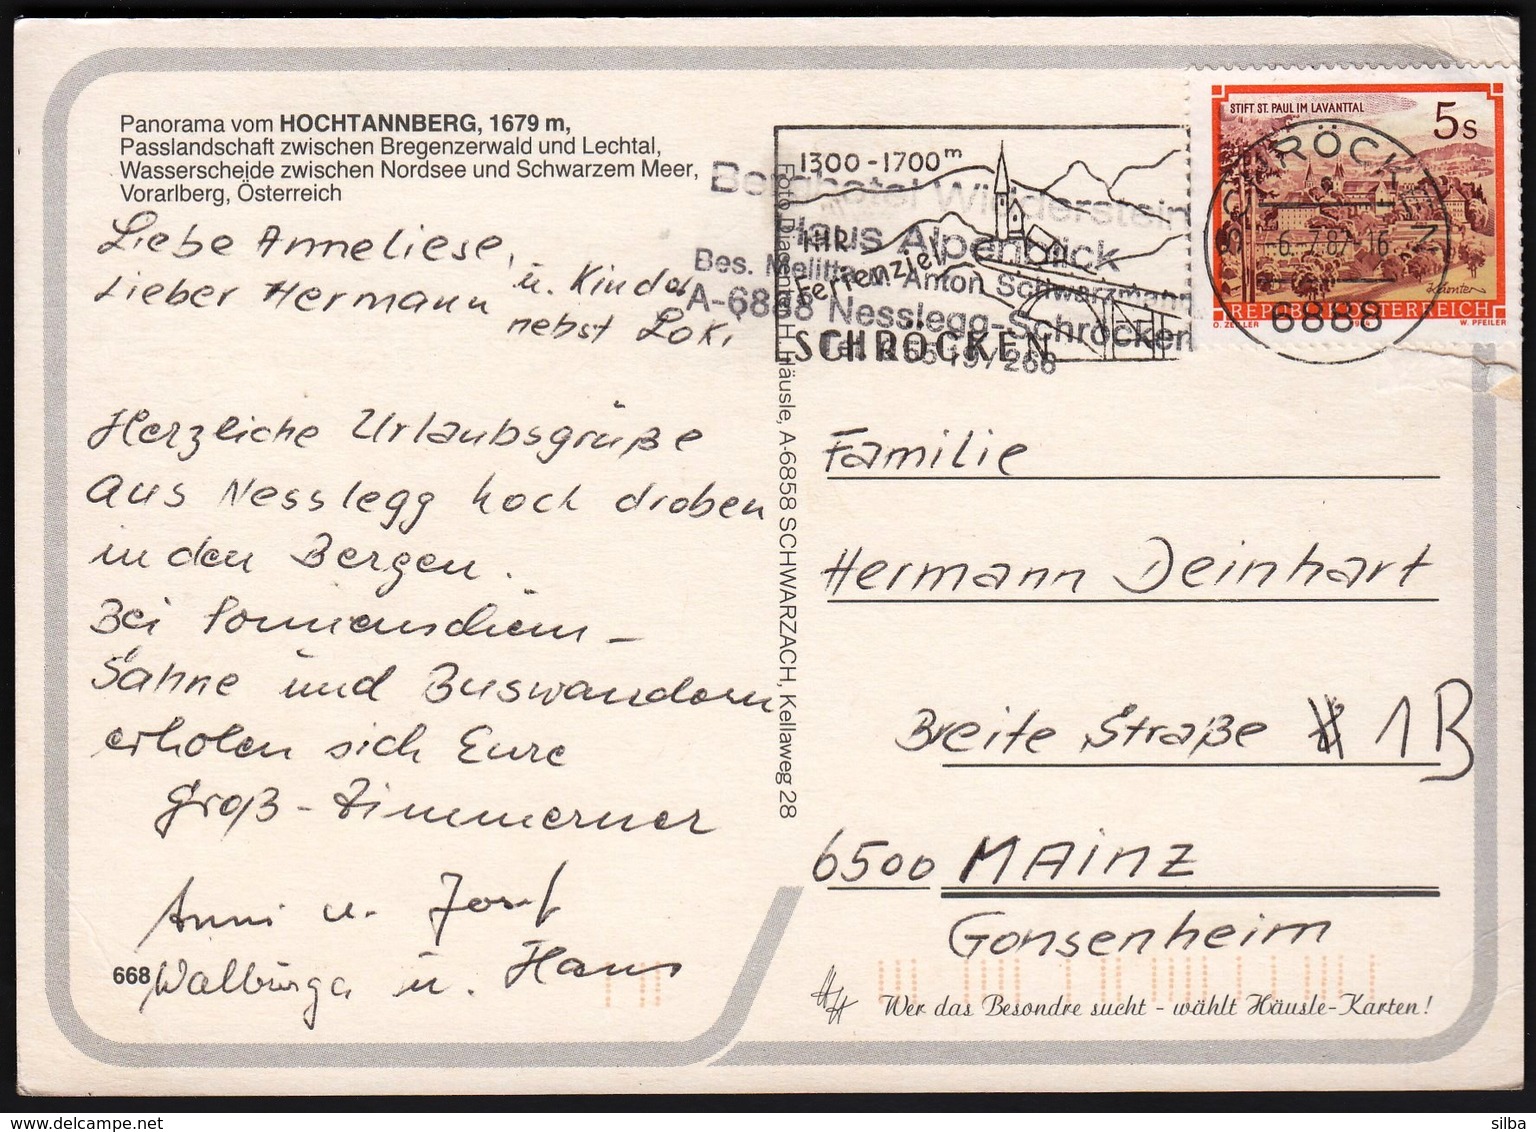 Panorama vom HOCHTANNBERG, 1679 m,
Passlandschaft zwischen Bregenzerwald und Lechtal,
Wasserscheide zwischen Nordsee und Schwarzem Meer,
Vorarlberg, Österreich
Liebe Anneliese,
Lieber Hermann u. Kinder
nebst Loki
Herzliche Urlaubsgrüße
aus Nesslegg hoch droben
in den Bergen.
Bei Sonnenschein –
Sahne und Buswandern
erholen sich Eure
Groß-Zimmerner
Anni u. Josef
Walburga u. Hans
668
Foto Dia H. Häusle, A-6858 SCHWARZACH, Kellaweg 28
1300-1700 m
IHR
Ferienziel
SCHRÖCKEN
Berghotel Widderstein
Haus Alpenblick
Bes. Melitta u. Anton Schwarzmann
A-6888 Nesslegg-Schröcken
STIFT ST. PAUL IM LAVANTTAL
5s
Kärnten
REPUBLIK ÖSTERREICH
O. ZEILLER W. PFEILER
SCHRÖCKEN
-6.-7.87-16
6888
Familie
Hermann Deinhart
Breite Straße 1B
6500 MAINZ
Gonsenheim
HH Wer das Besondre sucht - wählt Häusle-Karten!
silba